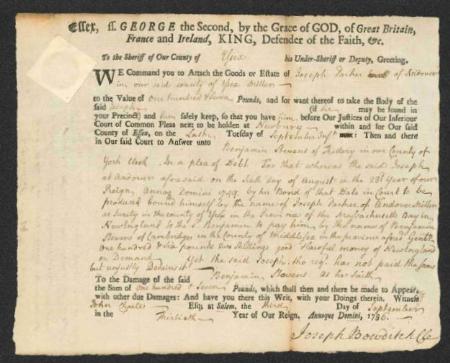 Essex, ss. GEORGE the Second, by the Grace of GOD, of Great Britain,
France and Ireland, KING, Defender of the Faith, &c.
To the Sheriff of Our County of Essex his Under-Sheriff or Deputy, Greeting.
WE Command you to Attach the Goods or Estate of Joseph Parker of Andover
in our said County of Essex Miller
to the Value of One hundred Pounds, and for want thereof to take the Body of the
said Joseph may be found in
your Precinct) and him safely keep, so that you have him before Our Justices of Our Inferiour
Court of Common Pleas next to be holden at Newbury within and for Our said
County of Essex, on the Last Tuesday of September Then and there
in Our said Court to Answer unto
Benjamin Stevens of Kittery in our County of
York Clerk In a plea of Debt For that whereas the said Joseph
at Andover aforesaid on the Sixth day of August in the 23d Year of our
Reign, Annoq Domini 1749 by his Bond of that Date in Court to be
produced bound himself by the name of Joseph Parker of Andover Miller
in the County of Essex in the Province of the Massachusetts Bay in
New England to the sd Benjamin to pay him by the name of Benjamin
Stevens of Cambridge in the County of Middlesex in the province aforesd Gentn
One hundred pounds two shillings good & lawful money of New England
on Demand Yet the said Joseph tho' reqd has not paid the same
but unjustly Detains it
To the Damage of the said Benjamin Stevens as he saith
the Sum of one hundred & Seven Pounds, which shall then and there be made to Appear,
with other due Damages: And have you there this Writ, with your Doings therein. Witness
John Esq; at Salem, the third Day of September
in the Thirtieth Year of Our Reign, Annoque Domini, 1756.
Joseph Bowditch Cle